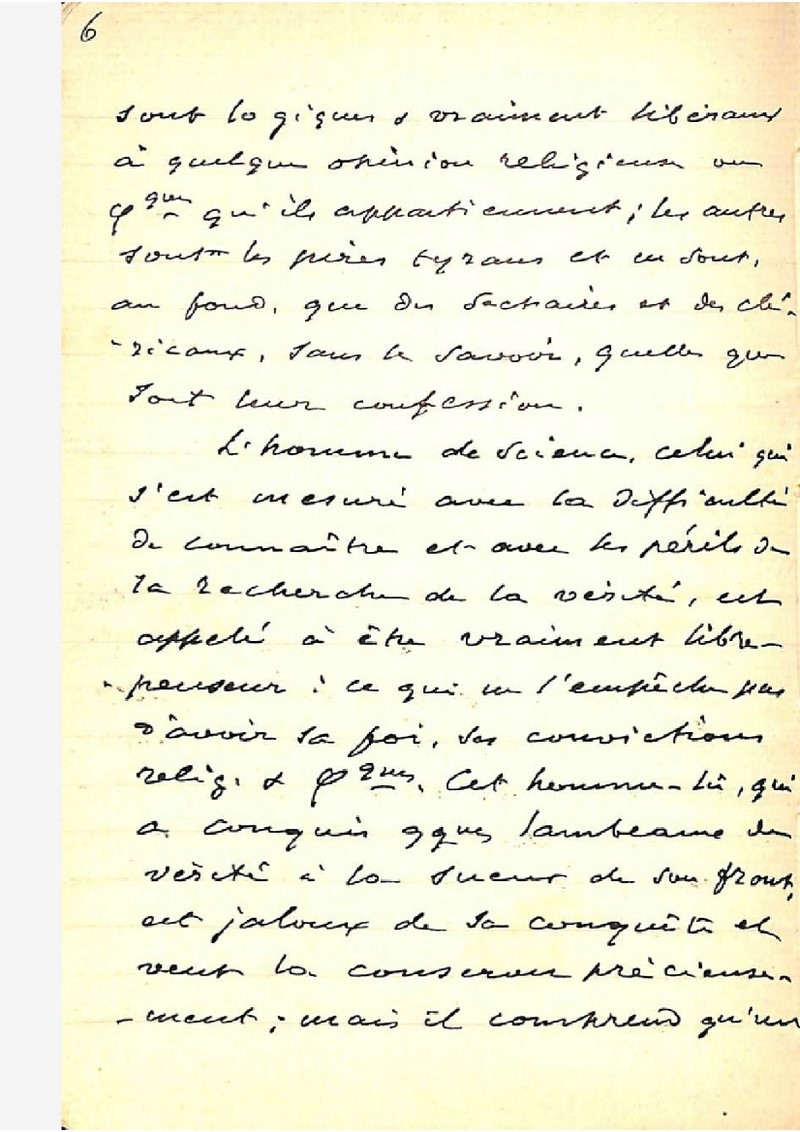 6
sont logiques & vraiment libéraux
à quelque opinion religieuse ou
φques qu'ils appartiennent ; les autres
sont les pires tyrans et ne sont,
au fond, que des sectaires et des clé-
-ricaux, sans le savoir, quelle que
soit leur confession.
L'homme de science, celui qui
s'est mesuré avec la difficulté
de connaître et avec les périls de
la recherche de la vérité, est
appelé à être vraiment libre-
-penseur : ce qui ne l'empêche pas
d'avoir sa foi, ses convictions
relig. & φques. Cet homme-là, qui
a conquis qques lambeaux de
vérité à la sueur de son front,
est jaloux de sa conquête et
veut la conserver précieuse-
-ment ; mais il comprend qu'un